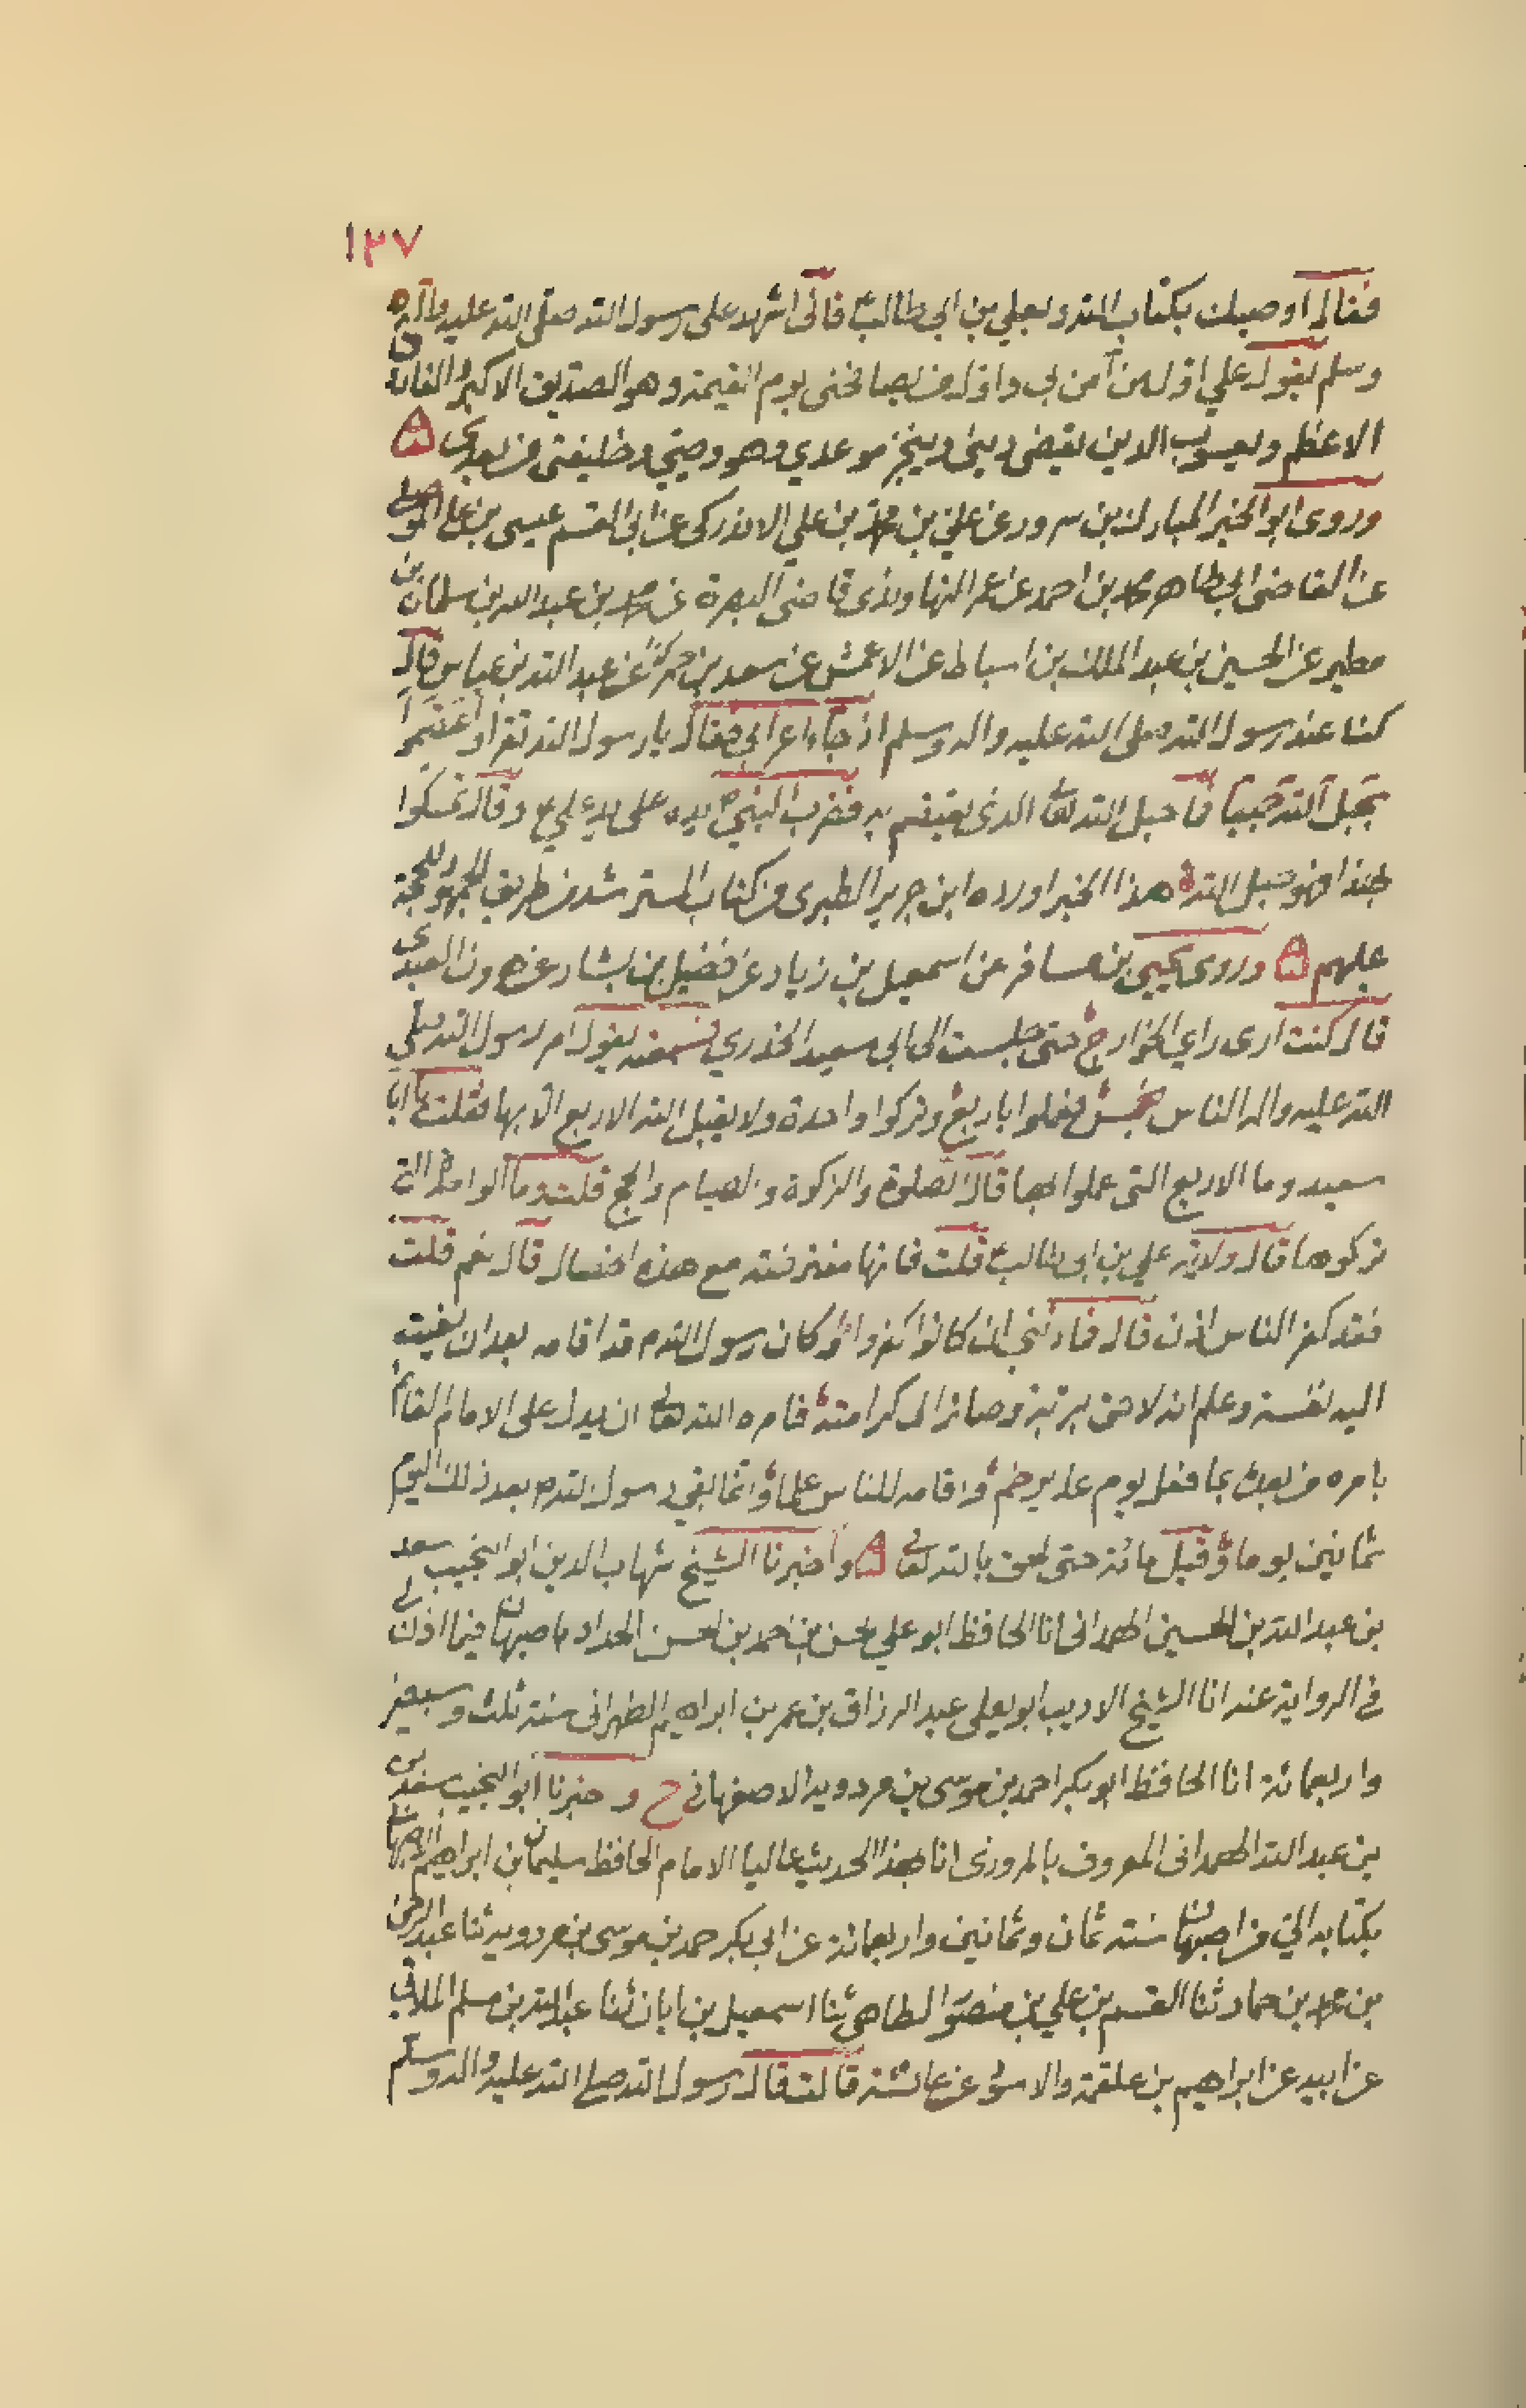 ١٣٧
فقال اوصيك بكتاب الله وبعلي بن ابي طالب ع فانى اشهد على رسول الله صلى الله عليه وآله
وسلم يقول علي اول من آمن بي واول من يصافحنى يوم القيمة وهو الصديق الاكبر و الفاروق
الاعظم ويعسوب الدين يقضى دينى وينجز موعدي وهو وصيي وخليفتى من بعدى
وروى ابو الخير المبارك بن سرور عن علي بن محمد بن علي الاندركى عن ابى القسم عيسى بن على الموصلى
عن القاضى ابى طاهر محمد بن احمد عن عمر النهاوندى قاضى البصرة عن محمد بن عبد الله بن سلمان بن
مطير عن الحسين بن عبد الملك بن اسباط عن الاعمش عن سعد بن عن عبد الله بن عباس قال
كنا عند رسول الله صلى الله عليه واله وسلم اذ جاء اعرابى فقال يا رسول الله تقرا واعتصموا
بحبل الله جميعا فما حبل الله تعالى الذى يعتصم به فضرب النبي ص يده على يد علي ع وقال تمسكوا
بهذا فهو حبل الله هذا الخبر اورده ابن جرير الطبرى في كتاب المسترشد من طريق الجمهور للحجة
عليهم وروى يحيى بن مسافر عن اسمعيل بن زياد عن فضيل بن بشار عن هرون العبدى
قال كنت ارى راي الخوارج حتى جلست الى ابى سعيد الخدري فسمعته يقول امر رسول الله صلى
الله عليه واله الناس بخمس فعملوا باربع وتركوا واحدة ولا يقبل الله الاربع الا بها فقلت يا ابا
سعيد وما الاربع التى عملوا بها قال الصلوة والزكوة والصيام والحج قلت وما الواحدة التى
تركوها قال ولاية علي بن ابى طالب ع قلت فانها مفترضة مع هذه الخصال قال نعم قلت
فقد كفر الناس اذن قال فما ذنبى ان كانوا كفروا وكان رسول الله ص قد اقامه بعد ان نعيت
اليه نفسه وعلم انه لاحق بربه وصائر الى كرامته فامره الله تعالى ان يدل على الامام القائم
بامره من بعده بما فعل يوم غدير خم واقامه للناس علما وانما بقي رسول الله ص بعد ذلك اليوم
ثمانين يوما وقيل مائة حتى لحق بالله تعالى واخبرنا الشيخ شهاب الدين ابو النجيب سعد
بن عبد الله بن الحسين الهمدانى انا الحافظ ابو علي لحسن بن احمد بن الحسن الحداد باصبهان فيما اذن لى
فى الرواية عنه انا الشيخ الاديب ابو يعلى عبد الرزاق بن عمر بن ابراهيم الطهرانى سنة ثلث وسبعين
واربعمائة انا الحافظ ابو بكر احمد بن موسى بن مردويه الاصفهانى ح و خبرنا ابو النجيب سعد بن
بن عبد الله الهمدانى المعروف بالمروزى انا بهذا الحديث عاليا الامام الحافظ سليمان بن ابراهيم الاصبهانى
بكتابه الي من اصبهان سنة ثمان وثمانين واربعمائة عن ابى بكر حمد بن موسى بن مردويه ثنا عبد الرحمن
بن محمد بن حماد ثنا القسم بن علي بن منصور الطاهى ثنا اسمعيل بن ابان ثنا عبد الله بن مسلم الملائى
عن ابيه عن ابراهيم بن علقمة والاسود عن عائشة قالت قال رسول الله صلى الله عليه واله وسلم